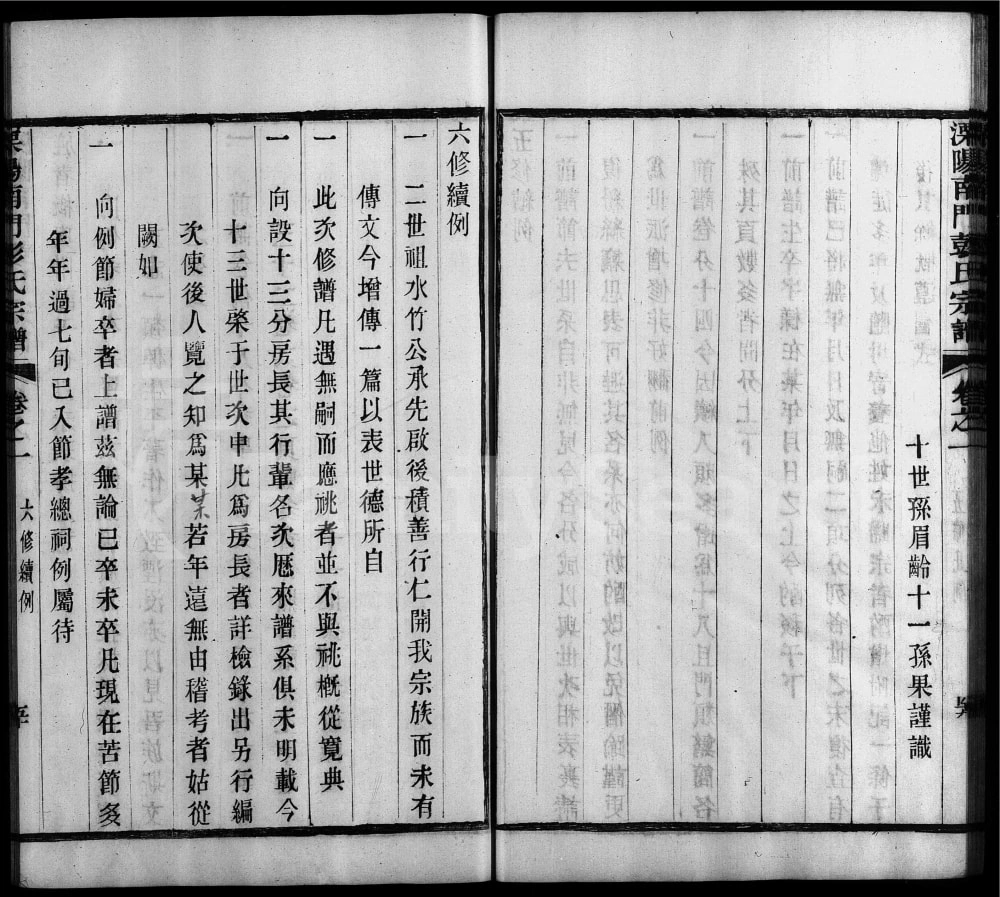 溧陽南門彭氏宗譜
卷之一
十世孫眉齡十一孫果謹識
六修續例
一 二世祖水竹公承先啟後積善行仁開我宗族而未有
傳文今增傳一篇以表世德所自
一 此次修譜凡遇無嗣而應祧者並不與祧槪從寬典
一 向設十三分房長其行輩名次厯來譜系俱未明載今
十三世榮于世次中凡爲房長者詳檢錄出另行編
次使後人覽之知爲某某若年遠無由稽考者姑從
闕如
一 向例節婦卒者上譜茲無論已卒未卒凡現在苦節多
年年過七旬已入節孝總祠例屬待
溧陽南門彭氏宗譜
卷之一
六修續例